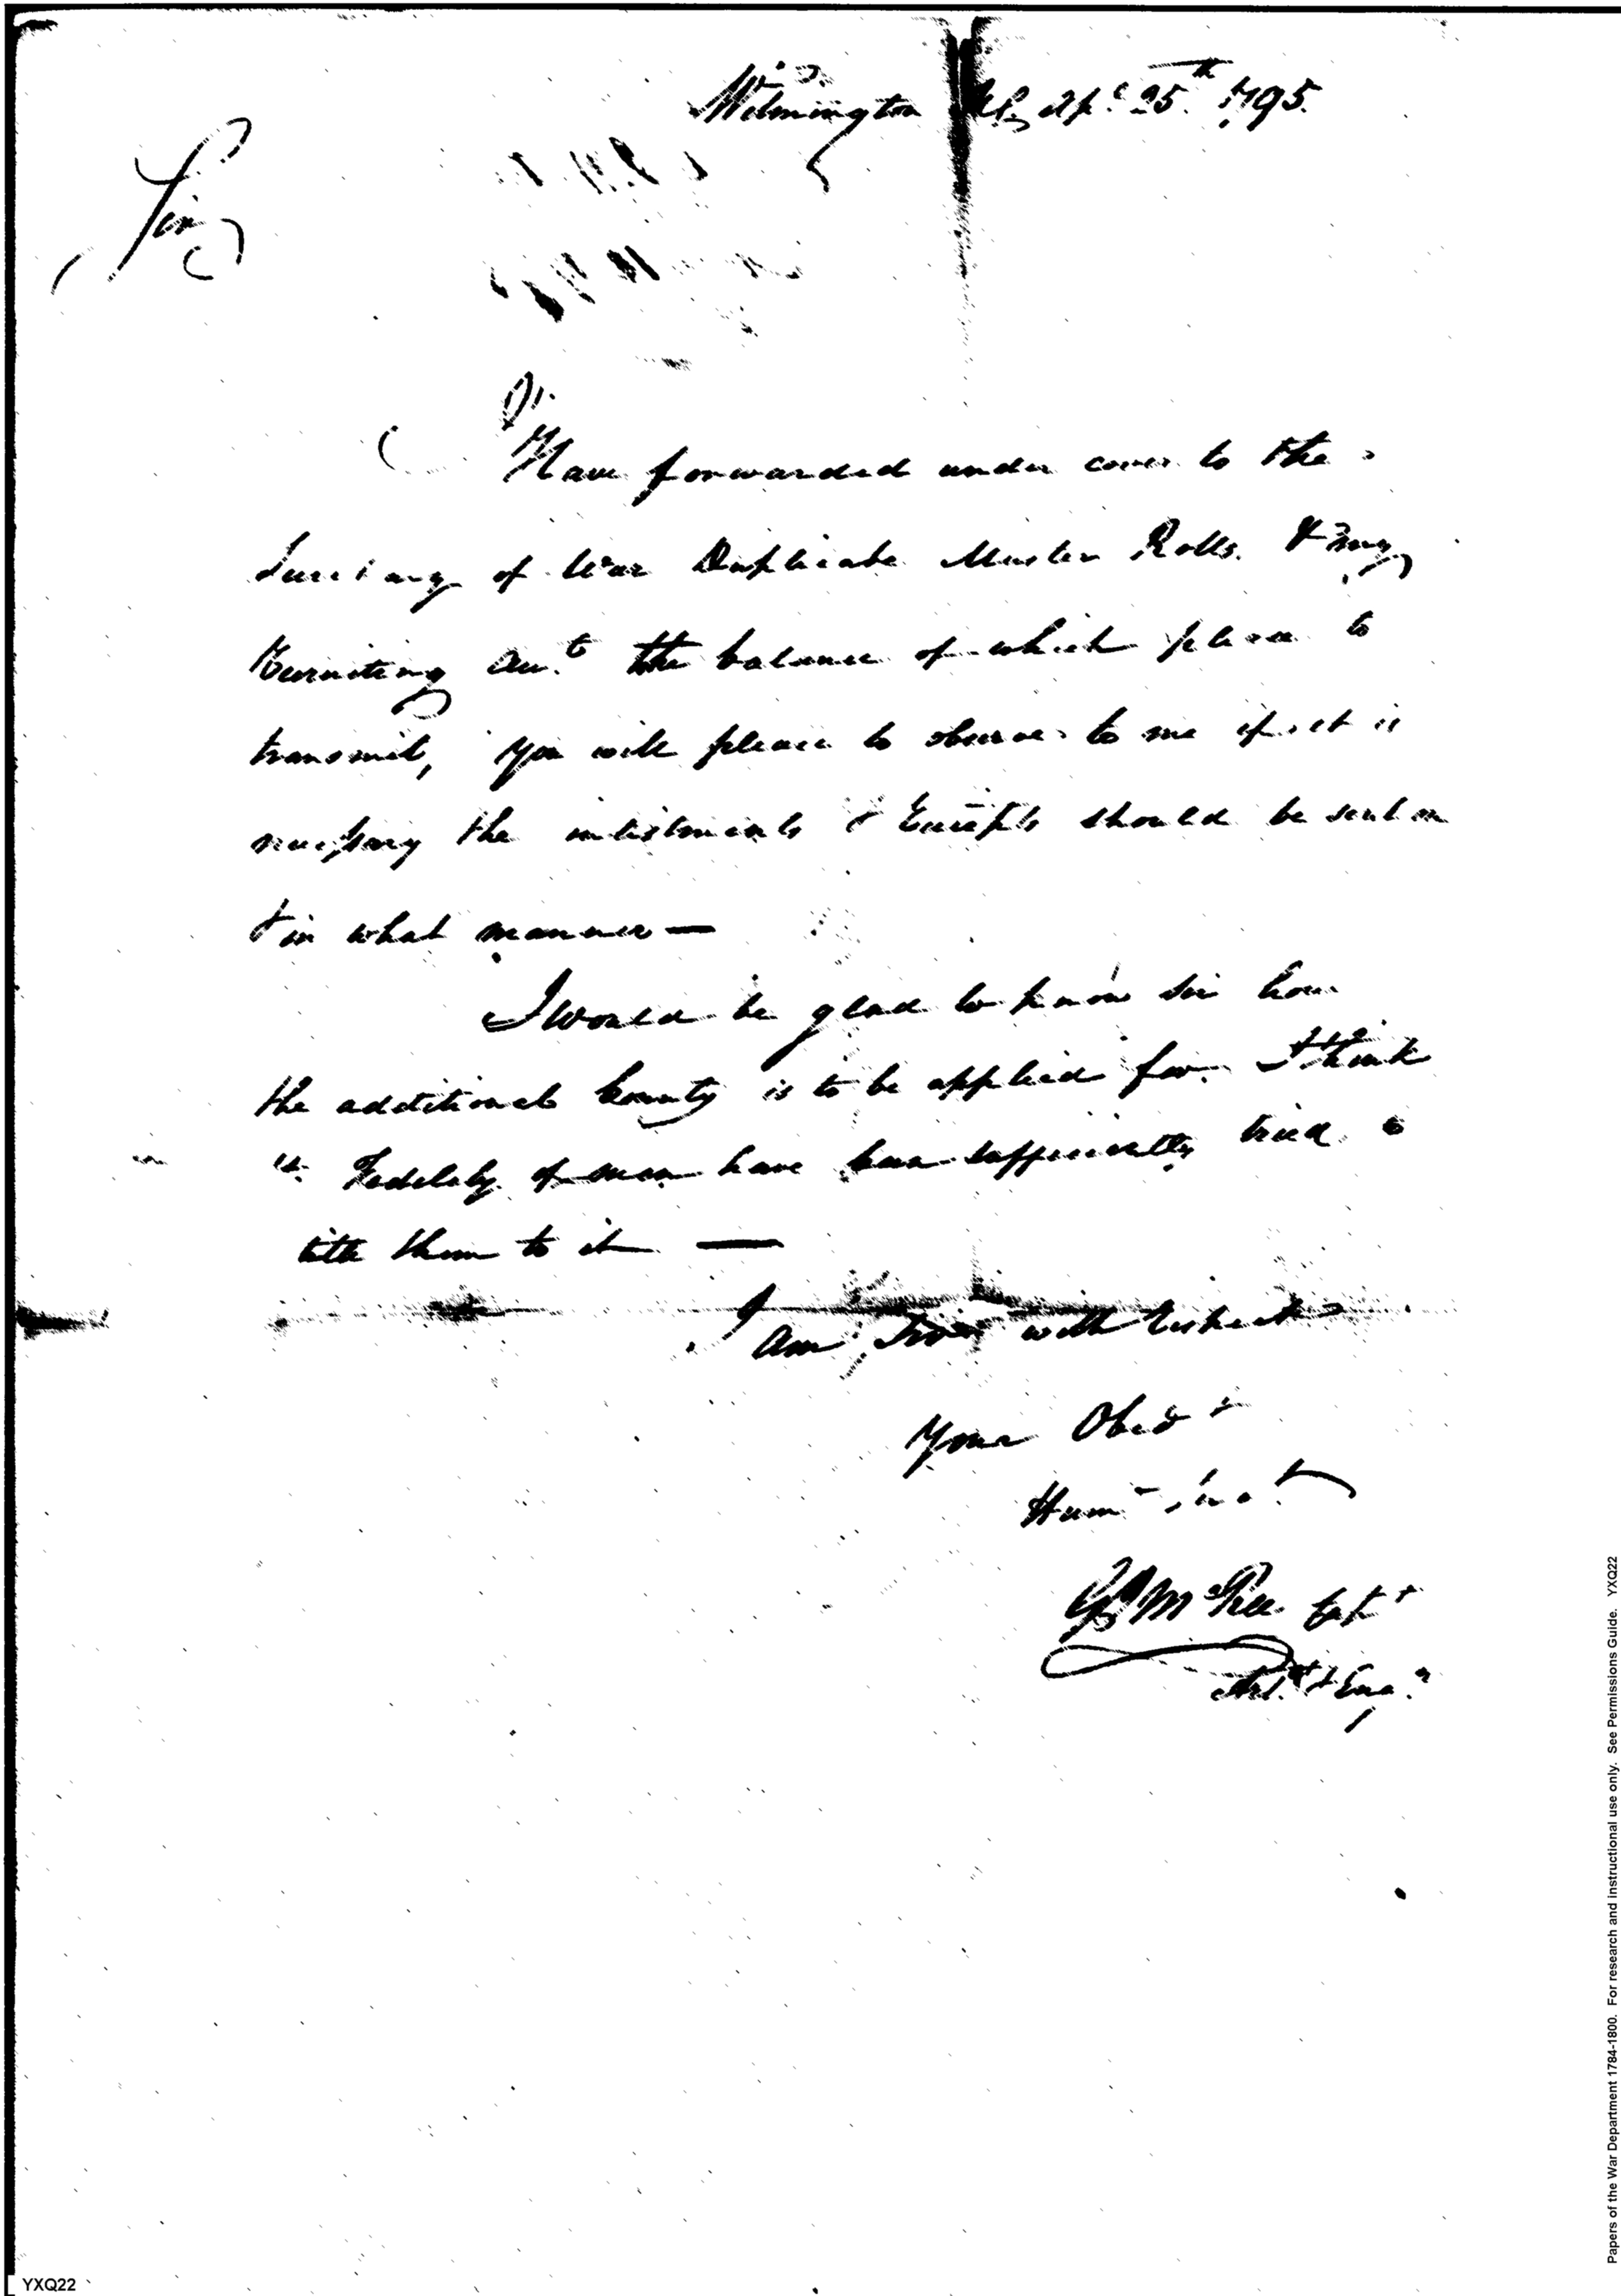 Wilmington Apl 25th 1795.
Sir
I
Have forwarded under cover to the
Secretary of War Duplicate Muster Rolls. & my
Recruiting Acct. the balance of which please to
transmit, you will please to observe to me if it is
necessary the inlistments & Receipts should be sent on
& in what manner —
I would be glad to know Sir how
the additional bounty is to be applied for. I think
Fidelity of men have been sufficiently tried to
title them to it —
I
am, Sir with Respect
Your Obedt
Humle Servt
McRee Capt
Artt & Engs
Papers of the War Department 1784-1800. For research and instructional use only. See Permissions Guide. YXQ22
YXQ22